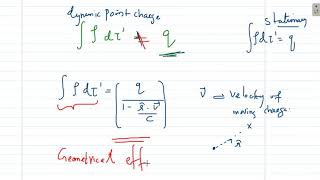 dynamic point charge
∫ ρ dτ' ≠ q
stationary
∫ρdτ' = q
∫ ρ dτ' = ( q / (1 - r̂·v⃗ / c) )
v⃗ → velocity of
moving charge.
x
r̂
Geometrical eff